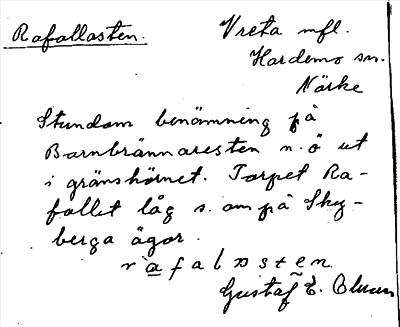 Rafallasten. Vreta mfl.
Hardemo sn.
Närke
Stundom benämning på
Barnbrännaresten n.ö ut
i gränshörnet. Torpet Ra-
fallet låg s. om på Sky-
berga ägor.
rafalɒsten
Gustaf E.